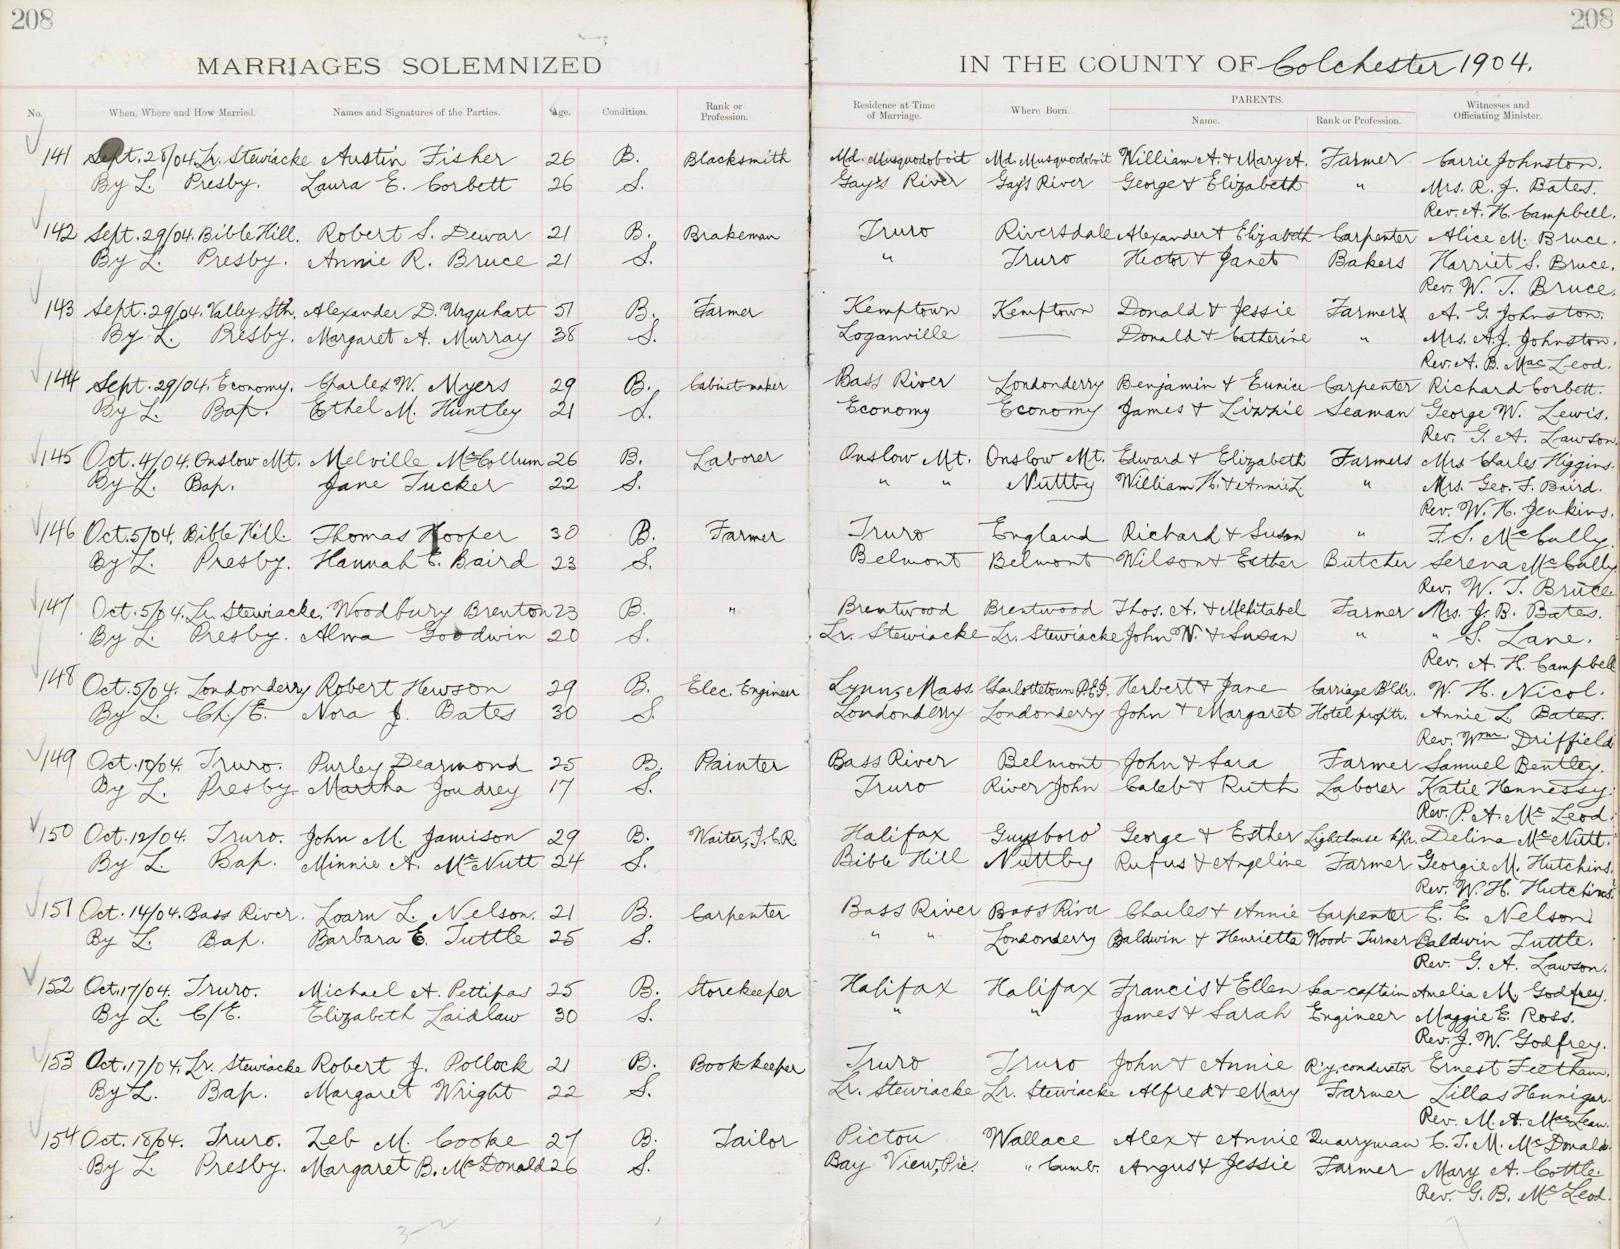 208
208
MARRIAGES SOLEMNIZED IN THE COUNTY OF Colchester 1904.
No. When, Where and How Married. Names and Signatures of the Parties. Age. Condition. Rank or Profession. Residence at Time of Marriage. Where Born. PARENTS. Name. Rank or Profession. Witnesses and Officiating Minister.
141 Sept. 28/04. Lr. Stewiacke Austin Fisher 26 B. Blacksmith Md. Musquodoboit Md. Musquodoboit William A. & Mary A. Farmer Carrie Johnston.
By L. Presby. Laura E. Corbett 26 S. Gay's River Gay's River George & Elizabeth " Mrs. R. J. Bates.
Rev. A. H. Campbell.
142 Sept. 29/04. Bible Hill. Robert S. Dewar 21 B. Brakeman Truro Riversdale Alexander & Elizabeth Carpenter Alice M. Bruce.
By L. Presby. Annie R. Bruce 21 S. " Truro Hector & Janet Bakers Harriet S. Bruce.
Rev. W. T. Bruce.
143 Sept. 29/04. Valley Stn. Alexander D. Urquhart 51 B. Farmer Kemptown Kemptown Donald & Jessie Farmers A. G. Johnston.
By L. Presby. Margaret A. Murray 38 S. Loganville — Donald & Catherine " Mrs. A. J. Johnston.
Rev. A. B. MacLeod.
144 Sept. 29/04. Economy. Charles W. Myers 29 B. Cabinet-maker Bass River Londonderry Benjamin & Eunice Carpenter Richard Corbett.
By L. Bap. Ethel M. Huntley 21 S. Economy Economy James & Lizzie Seaman George W. Lewis.
Rev. G. A. Lawson.
145 Oct. 4/04. Onslow Mt. Melville McCollum 26 B. Laborer Onslow Mt. Onslow Mt. Edward & Elizabeth Farmers Mrs Charles Higgins.
By L. Bap. Jane Tucker 22 S. " " Nuttby William H. & Annie L " Mrs. Geo. F. Baird.
Rev. W. H. Jenkins.
146 Oct. 5/04. Bible Hill. Thomas Hooper 30 B. Farmer Truro England Richard & Susan " F. S. McCully.
By L. Presby. Hannah E. Baird 23 S. Belmont Belmont Wilson & Esther Butcher Serena McCully
Rev. W. T. Bruce
147 Oct. 5/04. Lr. Stewiacke. Woodbury Brenton 23 B. " Brentwood Brentwood Thos. A. & Mehitabel Farmer Mrs. J. B. Bates.
By L. Presby. Alma Goodwin 20 S. Lr. Stewiacke Lr. Stewiacke John W. & Susan " " S. Lane.
Rev. A. H. Campbell
148 Oct. 5/04. Londonderry Robert Hewson 29 B. Elec. Engineer Lynn, Mass. Charlottetown P.E.I. Herbert & Jane Carriage B'ldr. W. H. Nicol.
By L. Ch/E. Nora J. Bates 30 S. Londonderry Londonderry John & Margaret Hotel prop'tr. Annie L. Bates.
Rev. Wm Driffield
149 Oct. 10/04. Truro. Purley Dearmond 25 B. Painter Bass River Belmont John & Sara Farmer Samuel Bentley.
By L. Presby. Martha Joudrey 17 S. Truro River John Caleb & Ruth Laborer Katie Hennessy.
Rev. P. A. McLeod.
150 Oct. 12/04. Truro. John M. Jamison 29 B. Waiter, I.C.R. Halifax Guysboro' George & Esther Lighthouse k'pr. Delina McNutt.
By L. Bap. Minnie A. McNutt 24 S. Bible Hill Nuttby Rufus & Angeline Farmer Georgie M. Hutchins.
Rev. W. H. Hutchins.
151 Oct. 14/04. Bass River. Loarn L. Nelson. 21 B. Carpenter Bass River Bass River Charles & Annie Carpenter E. E. Nelson
By L. Bap. Barbara E. Tuttle 25 S. " " Londonderry Baldwin & Henrietta Wood Turner Baldwin Tuttle.
Rev. G. A. Lawson.
152 Oct. 17/04. Truro. Michael A. Pettipas 25 B. Storekeeper Halifax Halifax Francis & Ellen Sea-captain Amelia M. Godfrey.
By L. C/E. Elizabeth Laidlaw 30 S. " " James & Sarah Engineer Maggie E. Ross.
Rev. J. W. Godfrey.
153 Oct. 17/04. Lr. Stewiacke Robert J. Pollock 21 B. Book-keeper Truro Truro John & Annie R'y. conductor Ernest Feetham.
By L. Bap. Margaret Wright 22 S. Lr. Stewiacke Lr. Stewiacke Alfred & Mary Farmer Lillas Hennigar.
Rev. M. A. MacLean.
154 Oct. 18/04. Truro. Zeb M. Cooke 27 B. Tailor Pictou Wallace Alex & Annie Quarryman C. T. M. McDonald.
By L. Presby. Margaret B. McDonald 26 S. Bay View, Pic. " Cumb. Angus & Jessie Farmer Mary A. Cottle.
Rev. G. B. McLeod.
3-2